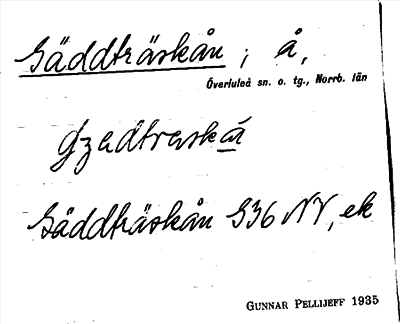 Gäddträskån ; å,
Överluleå sn. o. tg., Norrb. län
Gäddträskån S36 NV, ek
GUNNAR PELLIJEFF 1935